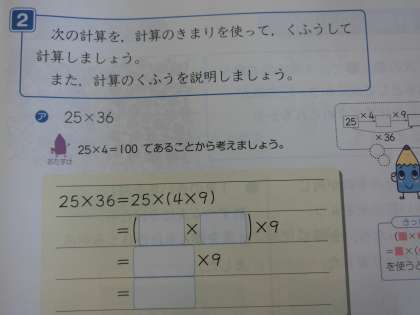 2
次の計算を，計算のきまりを使って，くふうして
計算しましょう。
また，計算のくふうを説明しましょう。
ア 25×36
おたすけ 25×4=100 であることから考えましょう。
25 ×4 ×9
×36
25×36=25×(4×9)
=( × )×9
= ×9
=
を使うと